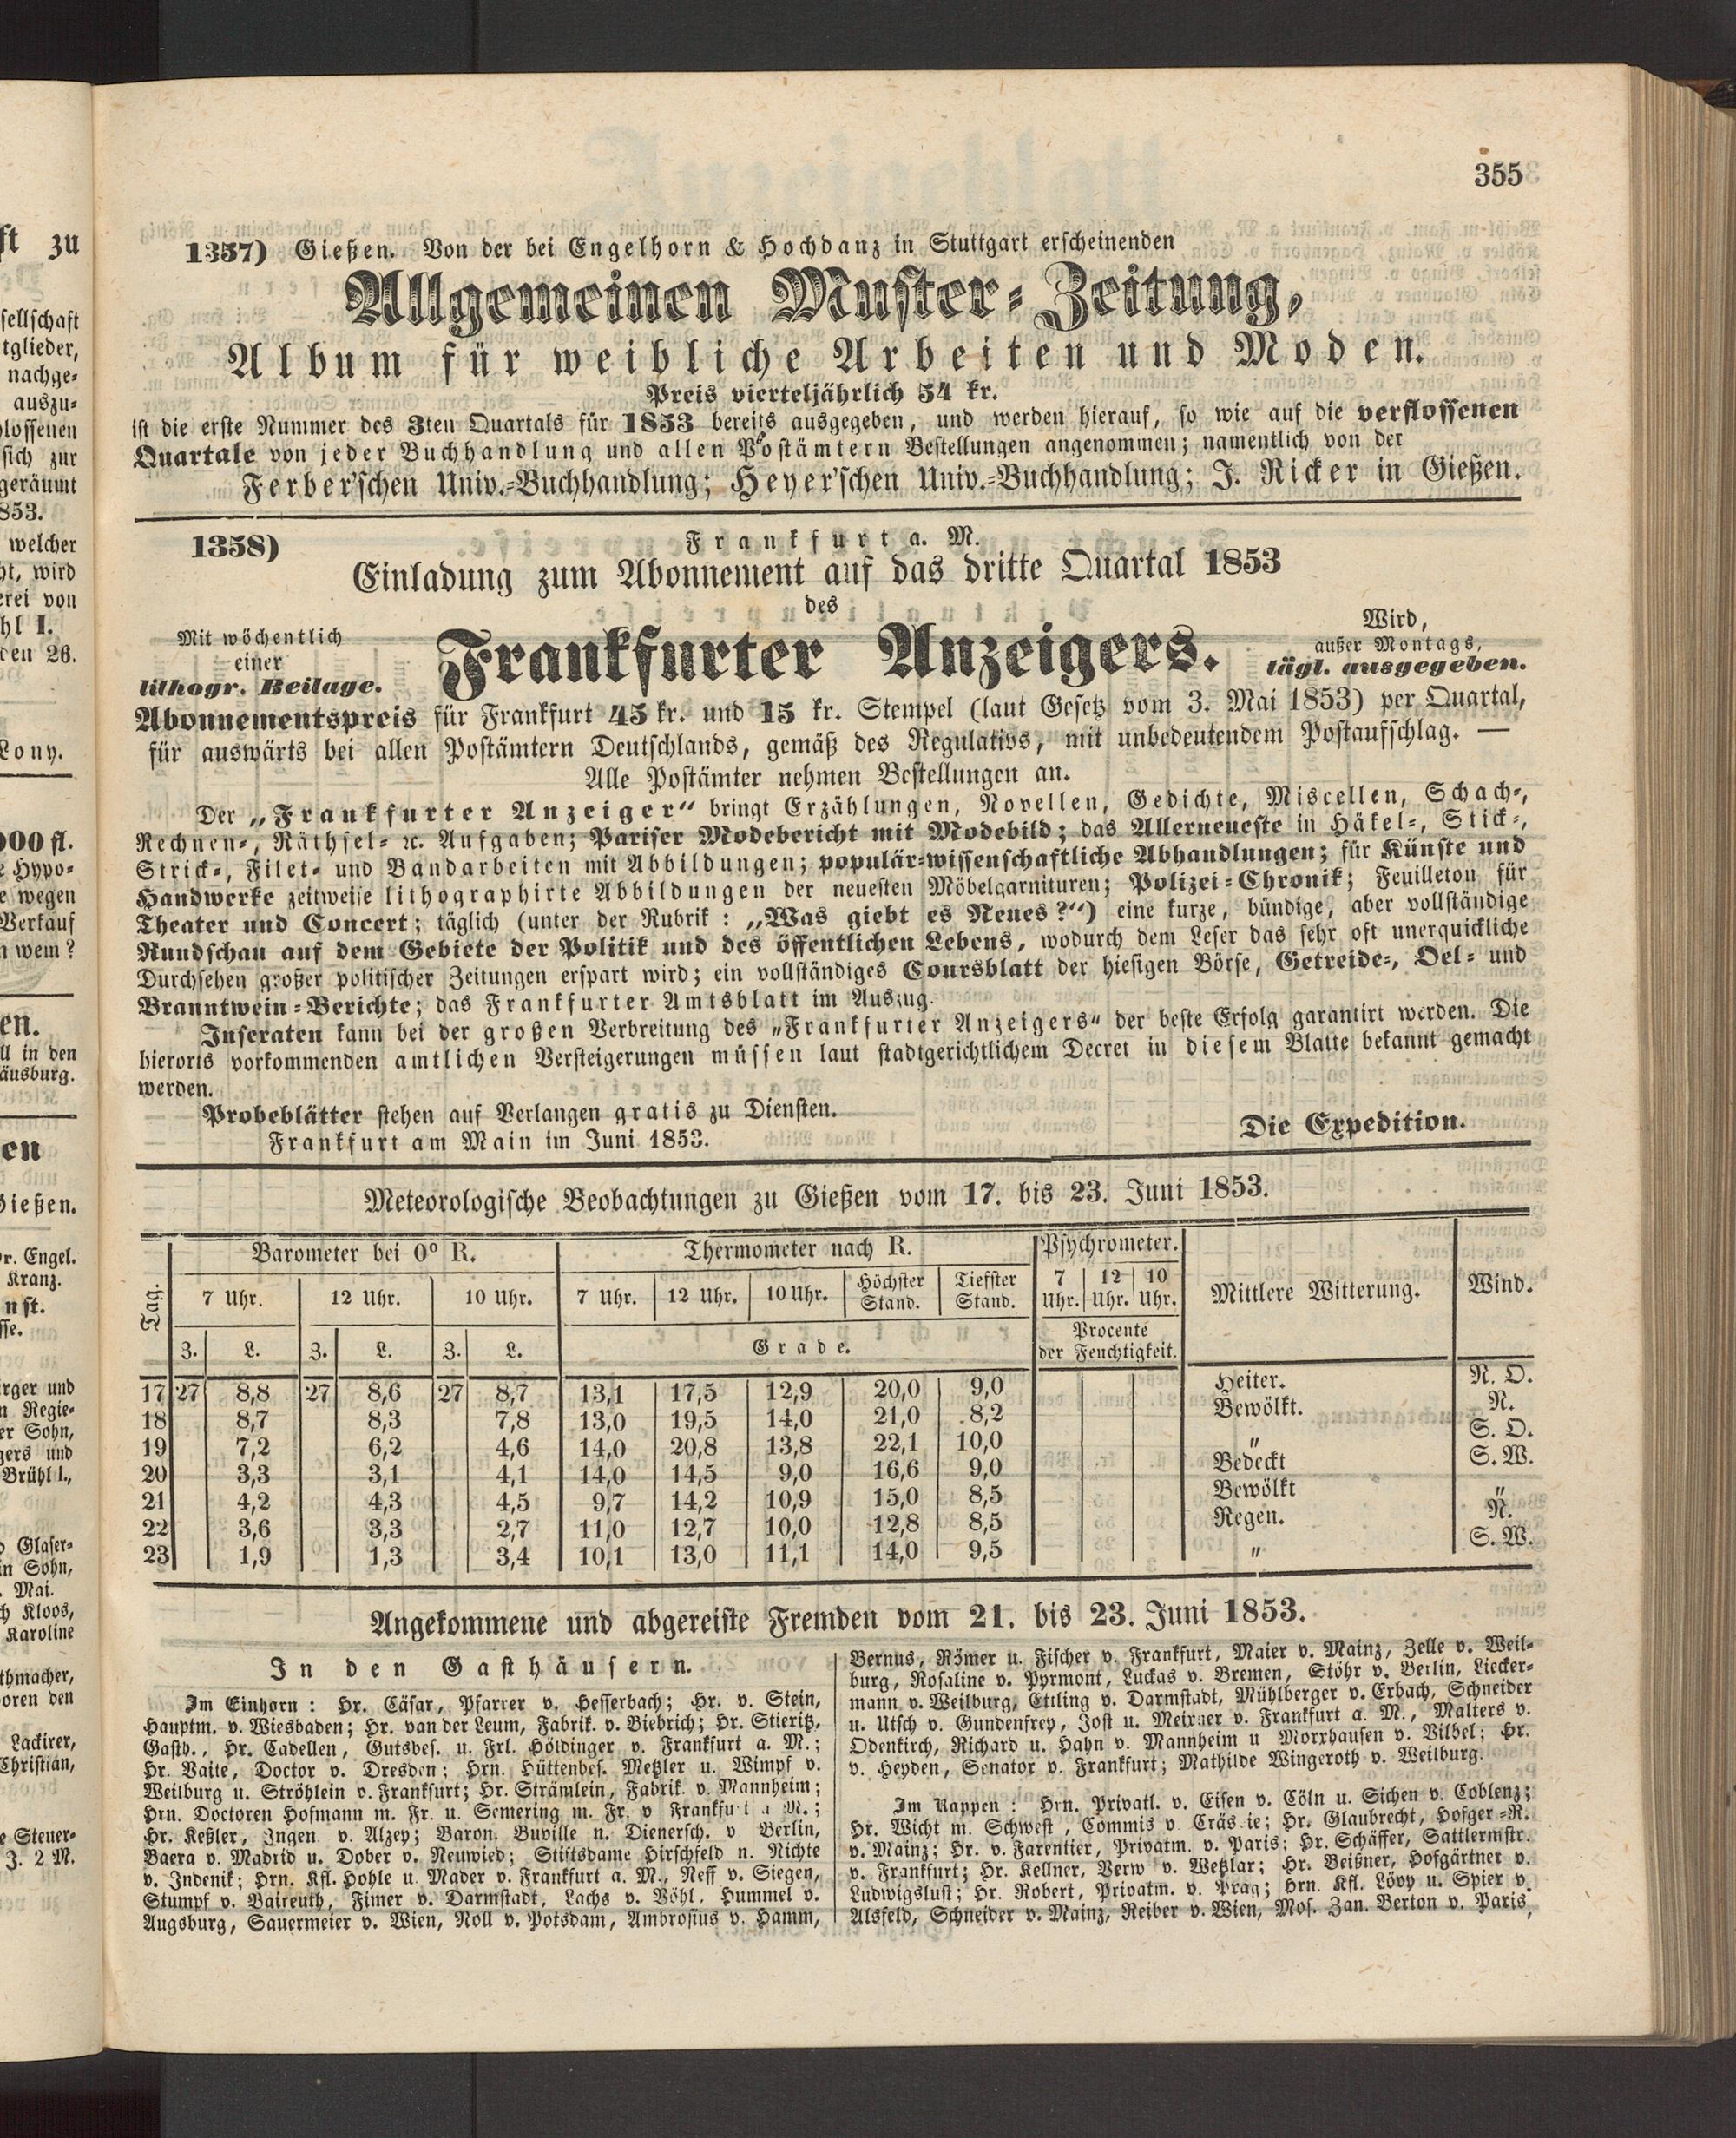 355
1357) Gießen. Von der bei Engelhorn & Hochdanz in Stuttgart erscheinenden
Allgemeinen Muster-Zeitung,
Album für weibliche Arbeiten und Moden.
Preis vierteljährlich 54 kr.
ist die erste Nummer des 3ten Quartals für 1853 bereits ausgegeben, und werden hierauf, so wie auf die verflossenen
Quartale von jeder Buchhandlung und allen Postämtern Bestellungen angenommen; namentlich von der
Ferber'schen Univ.-Buchhandlung; Heyer'schen Univ.-Buchhandlung; J. Ricker in Gießen.
1358) Frankfurt a. M.
Einladung zum Abonnement auf das dritte Quartal 1853
des
Mit wöchentlich
einer
lithogr. Beilage.
Frankfurter Anzeigers.
Wird,
außer Montags,
tägl. ausgegeben.
Abonnementspreis für Frankfurt 45 kr. und 15 kr. Stempel (laut Gesetz vom 3. Mai 1853) per Quartal,
für auswärts bei allen Postämtern Deutschlands, gemäß des Regulativs, mit unbedeutendem Postaufschlag. —
Alle Postämter nehmen Bestellungen an.
Der „Frankfurter Anzeiger“ bringt Erzählungen, Novellen, Gedichte, Miscellen, Schach-,
Rechnen-, Räthsel- ꝛc. Aufgaben; Pariser Modebericht mit Modebild; das Allerneueste in Häkel-, Stick-,
Strick-, Filet- und Bandarbeiten mit Abbildungen; populär-wissenschaftliche Abhandlungen; für Künste und
Handwerke zeitweise lithographirte Abbildungen der neuesten Möbelgarnituren; Polizei-Chronik; Feuilleton für
Theater und Concert; täglich (unter der Rubrik: „Was giebt es Neues?“) eine kurze, bündige, aber vollständige
Rundschau auf dem Gebiete der Politik und des öffentlichen Lebens, wodurch dem Leser das sehr oft unerquickliche
Durchsehen großer politischer Zeitungen erspart wird; ein vollständiges Coursblatt der hiesigen Börse, Getreide-, Oel- und
Branntwein-Berichte; das Frankfurter Amtsblatt im Auszug.
Inseraten kann bei der großen Verbreitung des „Frankfurter Anzeigers“ der beste Erfolg garantirt werden. Die
hierorts vorkommenden amtlichen Versteigerungen müssen laut stadtgerichtlichem Decret in diesem Blatte bekannt gemacht
werden.
Probeblätter stehen auf Verlangen gratis zu Diensten.
Frankfurt am Main im Juni 1853. Die Expedition.
Meteorologische Beobachtungen zu Gießen vom 17. bis 23. Juni 1853.
Tag. Barometer bei 0° R. Thermometer nach R. Psychrometer. Mittlere Witterung. Wind.
7 Uhr. 12 Uhr. 10 Uhr. 7 Uhr. 12 Uhr. 10 Uhr. Höchster Stand. Tiefster Stand. 7 Uhr. 12 Uhr. 10 Uhr.
Z. L. Z. L. Z. L. Grade. Procente der Feuchtigkeit.
17 27 8,8 27 8,6 27 8,7 13,1 17,5 12,9 20,0 9,0 Heiter. N. O.
18 8,7 8,3 7,8 13,0 19,5 14,0 21,0 8,2 Bewölkt. N.
19 7,2 6,2 4,6 14,0 20,8 13,8 22,1 10,0 „ S. O.
20 3,3 3,1 4,1 14,0 14,5 9,0 16,6 9,0 Bedeckt S. W.
21 4,2 4,3 4,5 9,7 14,2 10,9 15,0 8,5 Bewölkt „
22 3,6 3,3 2,7 11,0 12,7 10,0 12,8 8,5 Regen. N.
23 1,9 1,3 3,4 10,1 13,0 11,1 14,0 9,5 „ S. W.
Angekommene und abgereiste Fremden vom 21. bis 23. Juni 1853.
In den Gasthäusern.
Im Einhorn: Hr. Cäsar, Pfarrer v. Hesserbach; Hr. v. Stein,
Hauptm. v. Wiesbaden; Hr. van der Leum, Fabrik. v. Biebrich; Hr. Stieritz,
Gasth., Hr. Cadellen, Gutsbes. u. Frl. Höldinger v. Frankfurt a. M.;
Hr. Vaite, Doctor v. Dresden; Hrn. Hüttenbes. Metzler u. Wimpf v.
Weilburg u. Ströhlein v. Frankfurt; Hr. Strämlein, Fabrik. v. Mannheim;
Hrn. Doctoren Hofmann m. Fr. u. Semering m. Fr. v Frankfurt a M.;
Hr. Keßler, Ingen. v. Alzey; Baron. Buville n. Dienersch. v Berlin,
Baera v. Madrid u. Dober v. Neuwied; Stiftsdame Hirschfeld n. Nichte
v. Indenik; Hrn. Kfl. Hohle u. Mader v. Frankfurt a. M., Neff v. Siegen,
Stumpf v. Baireuth, Fimer v. Darmstadt, Lachs v. Vöhl, Hummel v.
Augsburg, Sauermeier v. Wien, Noll v. Potsdam, Ambrosius v. Hamm,
Bernus, Römer u. Fischer v. Frankfurt, Maier v. Mainz, Zelle v. Weil-
burg, Rosaline v. Pyrmont, Luckas v. Bremen, Stöhr v. Berlin, Liecker-
mann v. Weilburg, Ettling v. Darmstadt, Mühlberger v. Erbach, Schneider
u. Utsch v. Gundenfrey, Jost u. Meixner v. Frankfurt a. M., Malters v.
Odenkirch, Richard u. Hahn v. Mannheim u Morxhausen v. Vilbel; Hr.
v. Heyden, Senator v. Frankfurt; Mathilde Wingeroth v. Weilburg.
Im Rappen: Hrn. Privatl. v. Eisen v. Cöln u. Sichen v. Coblenz;
Hr. Wicht m. Schwest, Commis v. Hr. Glaubrecht, Hofger-R.
v. Mainz; Hr. v. Farentier, Privatm. v. Paris; Hr. Schäffer, Sattlermstr.
v. Frankfurt; Hr. Kellner, Verw v. Wetzlar; Hr. Beißner, Hofgärtner v.
Ludwigslust; Hr. Robert, Privatm. v. Prag; Hrn. Kfl. Lövy u. Spier v.
Alsfeld, Schneider v. Mainz, Reiber v. Wien, Mos. Zan. Berton v. Paris,